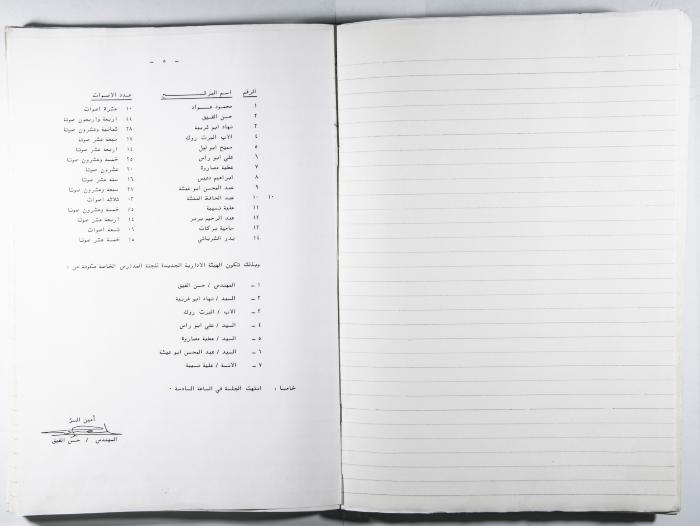 - ٥ -
الرقم اسم المرشح عدد الاصوات
١ محمود عواد ١٠ عشرة اصوات
٢ حسن القيق ٤٤ اربعة واربعون صوتا
٣ نهاد ابو غربية ٢٨ ثمانية وعشرون صوتا
٤ الاب البرت روك ١٧ سبعة عشر صوتا
٥ سميح ابو ١٤ اربعة عشر صوتا
٦ علي ابو راس ٢٥ خمسة وعشرون صوتا
٧ عطية مصاروة ٢٠ عشرون صوتا
٨ ابراهيم دعيس ١٦ ستة عشر صوتا
٩ عبد المحسن ابو عيشة ٢٧ سبعة وعشرون صوتا
١٠ ١٠ عبد الحافظ ٠٣ ثلاثة اصوات
١١ علية نسيبة ٢٥ خمسة وعشرون صوتا
١٢ عبد الرحيم بربر ١٤ اربعة عشر صوتا
١٣ سامية بركات ٠٦ اصوات
١٤ بدر الشرباتي ١٥ خمسة عشر صوتا
وبذلك تتكون الهيئة الادارية الجديدة للجنة المدارس الخاصة مكونة من :
١ - المهندس / حسن القيق
٢ - السيد / نهاد ابو غربية
٣ - الاب / البرت روك
٤ - السيد / علي ابو راس
٥ - السيد / عطية مصاروة
٦ - السيد / عبد المحسن ابو عيشة
٧ - الانسة / علية نسيبة
خامسا : انتهت الجلسة في الساعة السادسة ٠
أمين السر
المهندس / حسن القيق